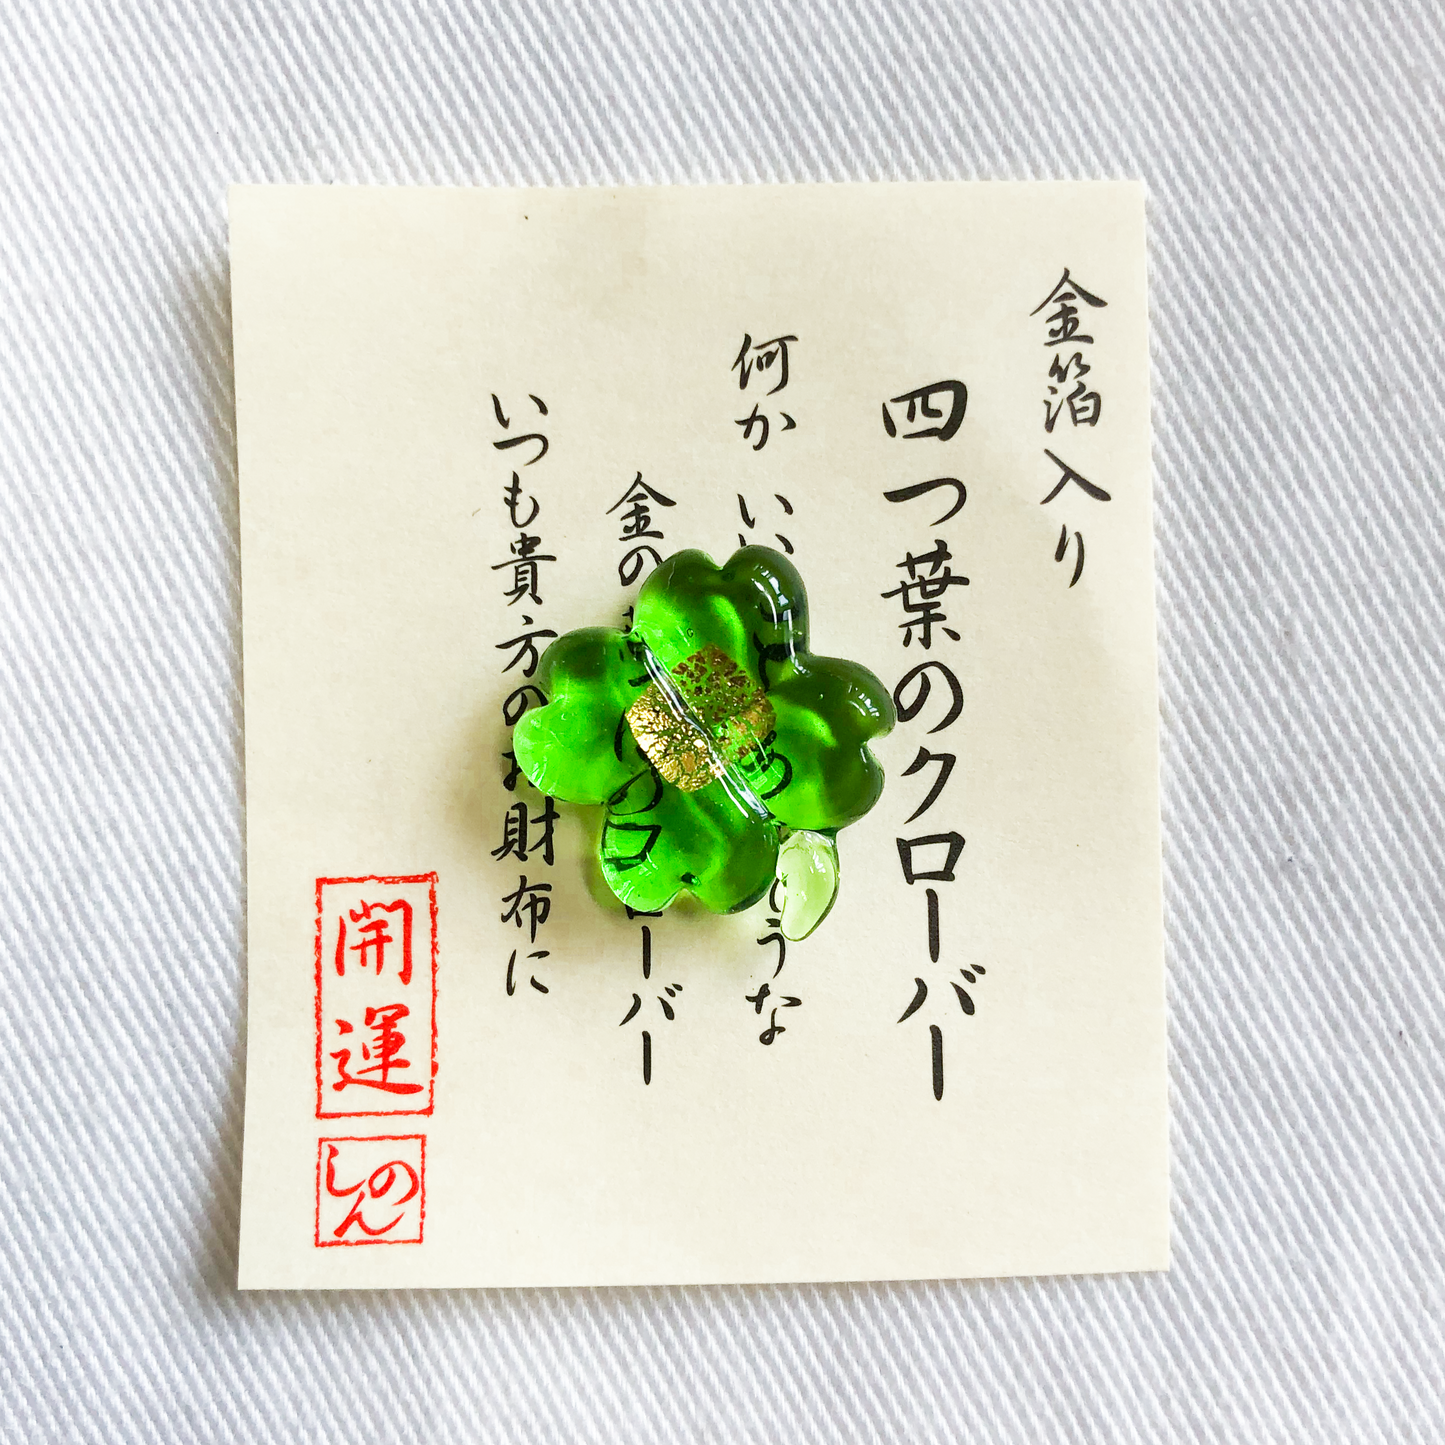 金箔入り
四つ葉のクローバー
何か いい うな
金の のクローバー
いつも貴方のお財布に
開運
しのん